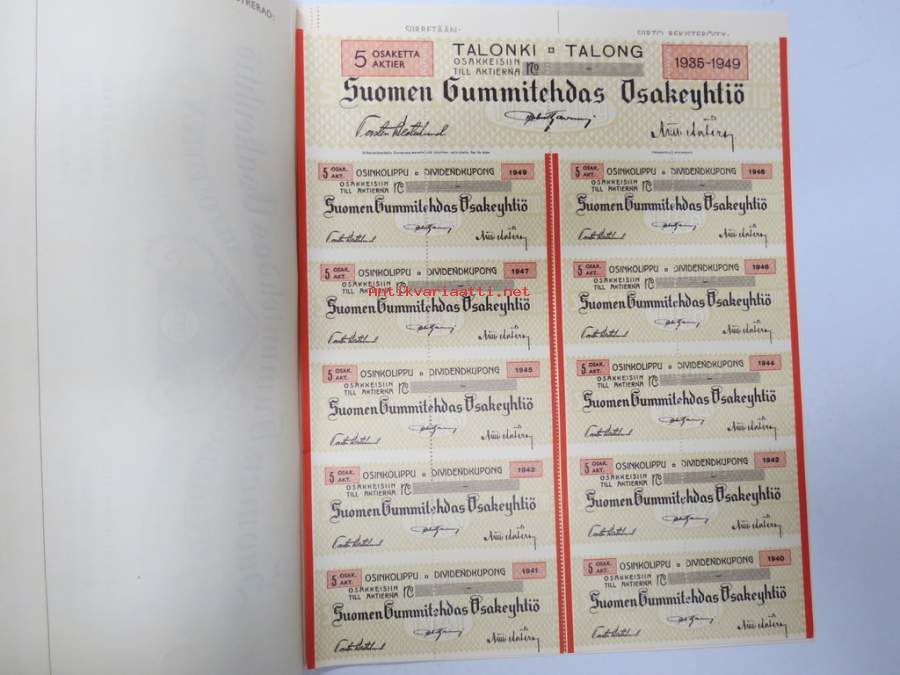 SIIRRETÄÄN:
SIIRTO REKISTERÖITY:
5 OSAKETTA
AKTIER
TALONKI ▫ TALONG
OSAKKEISIIN
TILL AKTIERNA No -
1935-1949
Suomen Gummitehdas Osakeyhtiö
5 OSAK.
AKT.
OSINKOLIPPU ▫ DIVIDENDKUPONG 1949
OSAKKEISIIN
TILL AKTIERNA No -
Suomen Gummitehdas Osakeyhtiö
5 OSAK.
AKT.
OSINKOLIPPU ▫ DIVIDENDKUPONG 1948
OSAKKEISIIN
TILL AKTIERNA No -
Suomen Gummitehdas Osakeyhtiö
5 OSAK.
AKT.
OSINKOLIPPU ▫ DIVIDENDKUPONG 1947
OSAKKEISIIN
TILL AKTIERNA No
Suomen Gummitehdas Osakeyhtiö
5 OSAK.
AKT.
OSINKOLIPPU ▫ DIVIDENDKUPONG 1946
OSAKKEISIIN
TILL AKTIERNA No -
Suomen Gummitehdas Osakeyhtiö
Antikvariaatti.net
5 OSAK.
AKT.
OSINKOLIPPU ▫ DIVIDENDKUPONG 1945
OSAKKEISIIN
TILL AKTIERNA No -
Suomen Gummitehdas Osakeyhtiö
5 OSAK.
AKT.
OSINKOLIPPU ▫ DIVIDENDKUPONG 1944
OSAKKEISIIN
TILL AKTIERNA No -
Suomen Gummitehdas Osakeyhtiö
5 OSAK.
AKT.
OSINKOLIPPU ▫ DIVIDENDKUPONG 1943
OSAKKEISIIN
TILL AKTIERNA No -
Suomen Gummitehdas Osakeyhtiö
5 OSAK.
AKT.
OSINKOLIPPU ▫ DIVIDENDKUPONG 1942
OSAKKEISIIN
TILL AKTIERNA No -
Suomen Gummitehdas Osakeyhtiö
5 OSAK.
AKT.
OSINKOLIPPU ▫ DIVIDENDKUPONG 1941
OSAKKEISIIN
TILL AKTIERNA No -
Suomen Gummitehdas Osakeyhtiö
5 OSAK.
AKT.
OSINKOLIPPU ▫ DIVIDENDKUPONG 1940
OSAKKEISIIN
TILL AKTIERNA No -
Suomen Gummitehdas Osakeyhtiö